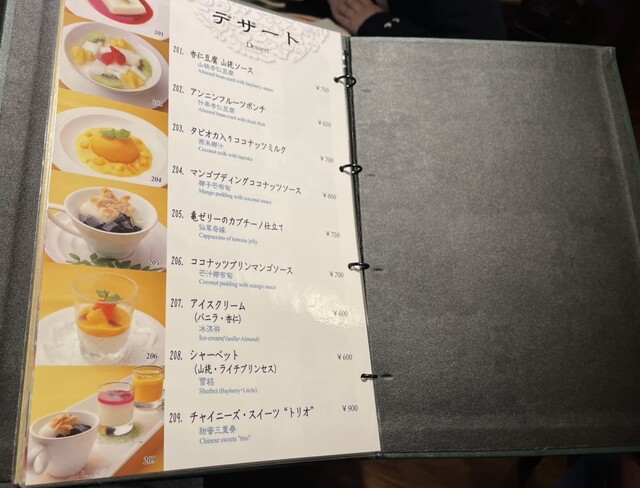 デザート
Dessert
201. 杏仁豆腐 山桃ソース
山桃杏仁豆腐
Almond bean-curd with bayberry sauce
¥750
202. アンニンフルーツポンチ
什果杏仁豆腐
Almond bean-curd with fresh fruit
¥650
203. タピオカ入りココナッツミルク
西米椰汁
Coconut milk with tapioka
¥700
204. マンゴプディングココナッツソース
椰子芒布甸
Mango pudding with coconut sauce
¥800
205. 亀ゼリーのカプチーノ仕立て
仙草奇緣
Cappuccino of tortoise jelly
¥750
206. ココナッツプリンマンゴソース
芒汁椰布甸
Coconut pudding with mango sauce
¥700
207. アイスクリーム
(バニラ・杏仁)
冰淇淋
Ice-cream(Vanilla・Almond)
¥600
208. シャーベット
(山桃・ライチプリンセス)
雪糕
Sherbet (Bayberry・Litchi)
¥600
209. チャイニーズ・スイーツ“トリオ”
甜蜜三重奏
Chinese sweets "trio"
¥900
201
202
204
205
206
209